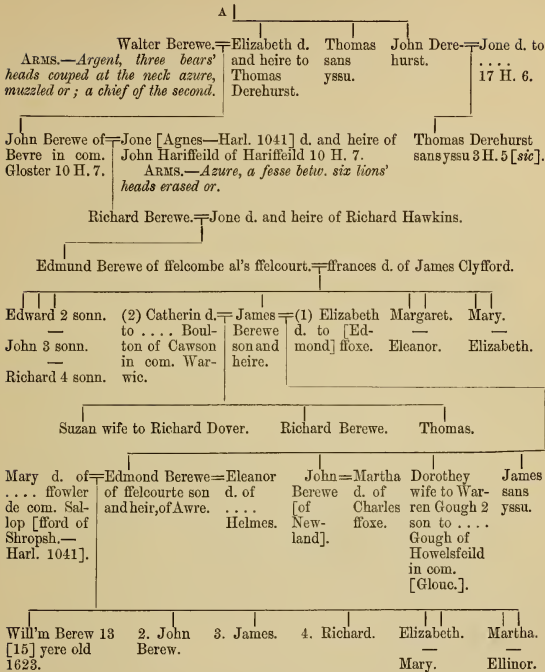 A
Walter Berewe.
ARMS.—Argent, three bears'
heads couped at the neck azure,
muzzled or; a chief of the second.
Elizabeth d.
and heire to
Thomas
Derehurst.
Thomas
sans
yssu.
John Dere-
hurst.
Jone d. to
. . . .
17 H. 6.
John Berewe of
Bevre in com.
Gloster 10 H. 7.
Jone [Agnes—Harl. 1041] d. and heire of
John Hariffeild of Hariffeild 10 H. 7.
ARMS.—Azure, a fesse betw. six lions'
heads erased or.
Thomas Derehurst
sans yssu 3 H. 5 [sic].
Richard Berewe. Jone d. and heire of Richard Hawkins.
Edmund Berewe of ffelcombe al's ffelcourt. ffrances d. of James Clyfford.
Edward 2 sonn.
—
John 3 sonn.
—
Richard 4 sonn.
(2) Catherin d.
to . . . . Boul-
ton of Cawson
in com. War-
wic.
James
Berewe
son and
heire.
(1) Elizabeth
d. to [Ed-
mond] ffoxe.
Margaret.
—
Eleanor.
Mary.
—
Elizabeth.
Suzan wife to Richard Dover. Richard Berewe. Thomas.
Mary d. of
. . . . ffowler
de com. Sal-
lop [fford of
Shropsh.—
Harl. 1041].
Edmond Berewe
of ffelcourte son
and heir, of Awre.
Eleanor
d. of
. . . .
Helmes.
John
Berewe
[of
New-
land].
Martha
d. of
Charles
ffoxe.
Dorothey
wife to War-
ren Gough 2
son to . . . .
Gough of
Howelsfeild
in com.
[Glouc.].
James
sans
yssu.
Will'm Berew 13
[15] yere old
1623.
2. John
Berew.
3. James.
4. Richard.
Elizabeth.
—
Mary.
Martha.
—
Ellinor.